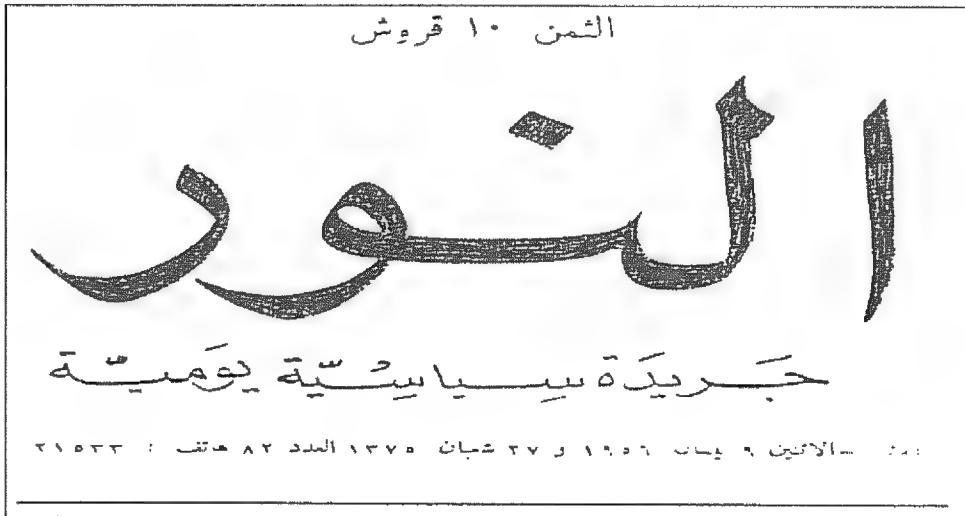 الثمن ١٠ قروش
النور
جَريدَة سِياسِيّة يوَميّة
الاثنين ٩ نيسان ١٩٥٦ و ٢٧ شعبان ١٣٧٥ العدد ٨٢ هاتف : ٢١٥٣٣